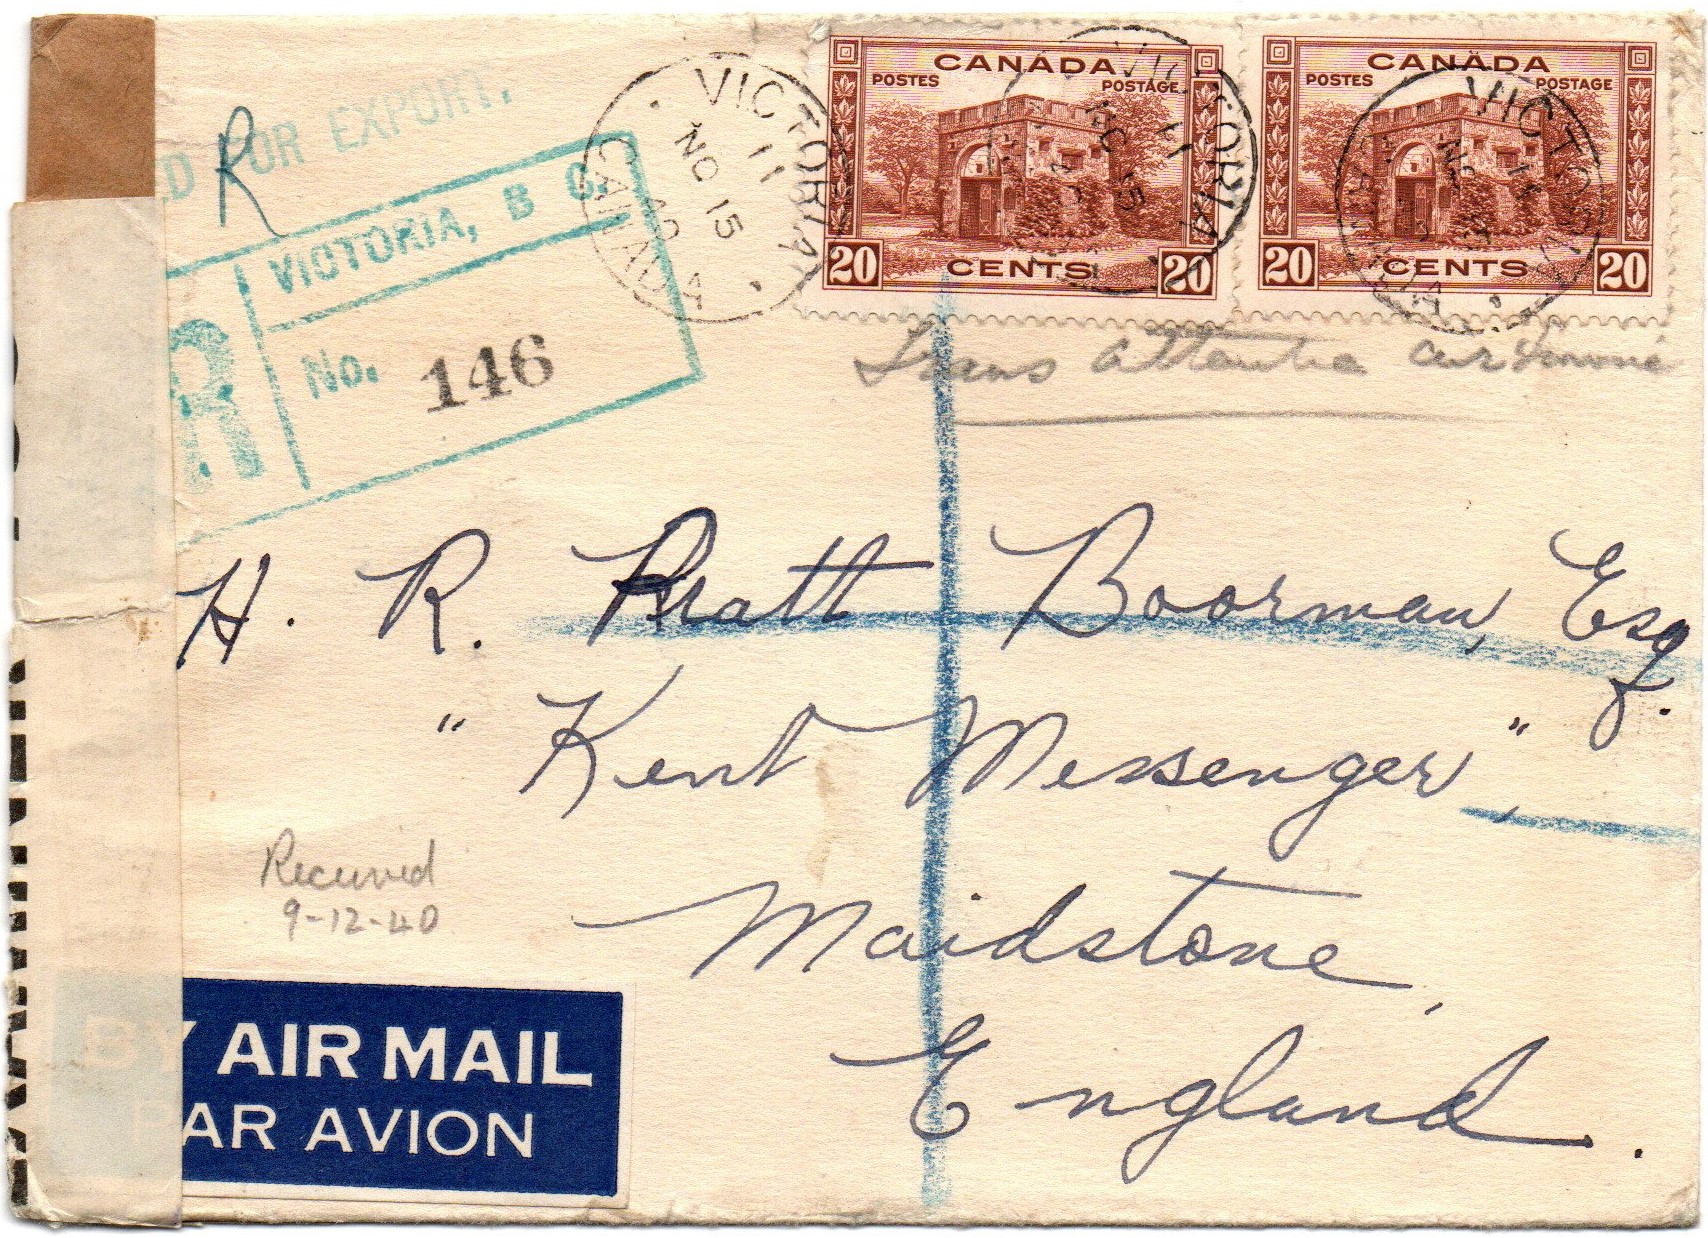 D FOR EXPORT.
R
R
VICTORIA, B C.
No. 146
VICTORIA
11
NO 15
40
CANADA
CANADA
POSTES POSTAGE
20 CENTS 20
VICTORIA
CANADA
POSTES POSTAGE
20 CENTS 20
VICTORIA
Trans Atlantic
H. R. Pratt Boorman, Esq.
"Kent Messenger",
Maidstone,
England.
Received
9-12-40
EXAMINER
BY AIR MAIL
PAR AVION